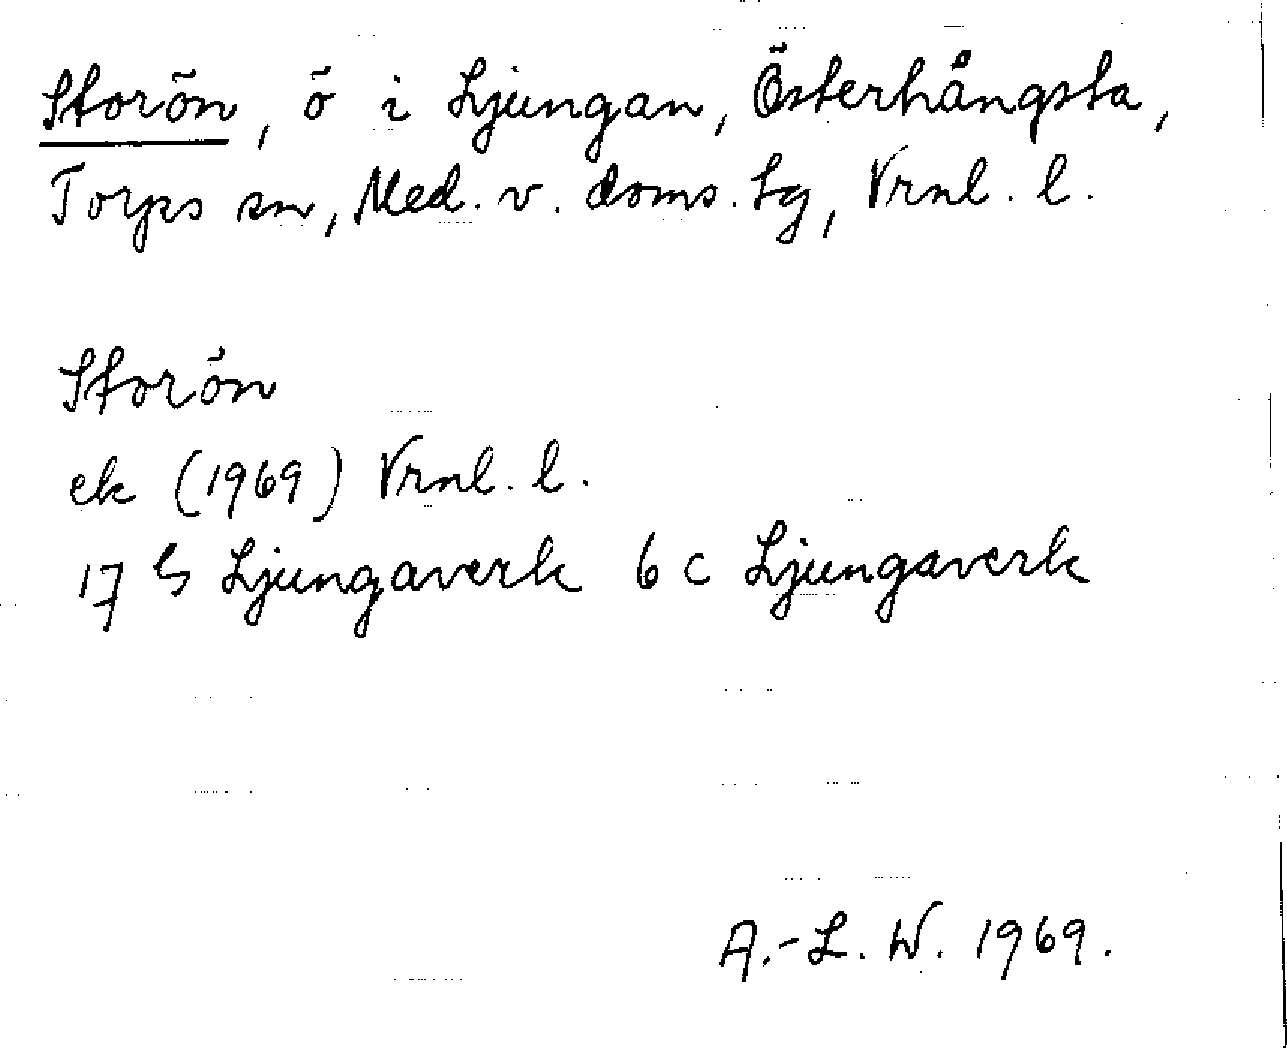 Storön, ö i Ljungan, Österhångsta,
Torps sn, Med. v. doms. tg, Vrnl. l.
Storön
ek (1969) Vrnl. l.
17 G Ljungaverk 6 c Ljungaverk
A.-L. W. 1969.